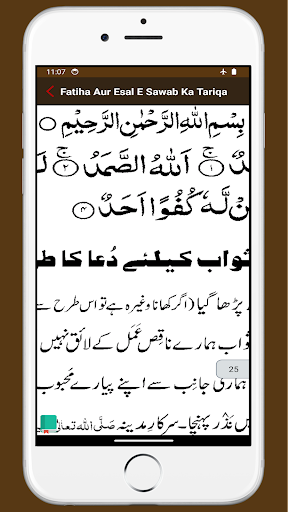 11:07
Fatiha Aur Esal E Sawab Ka Tariqa
بِسْمِ اللهِ الرَّحْمٰنِ الرَّحِيْمِ
دٌ ۚ ﴿۱﴾ اَللهُ الصَّمَدُ ۚ ﴿۲﴾ لَ
نْ لَّهٗ كُفُوًا اَحَدٌ ﴿۴﴾
ثواب کیلئے دُعا کا طر
پڑھا گیا (اگر کھانا وغیرہ ہے تو اس طرح سے
واب ہمارے ناقص عَمَل کے لائق نہیں
ہماری جانب سے اپنے پیارے محبوب
25
نذر پہنچا۔ سرکارِ مدینہ صَلَّی اللہُ تعالٰی